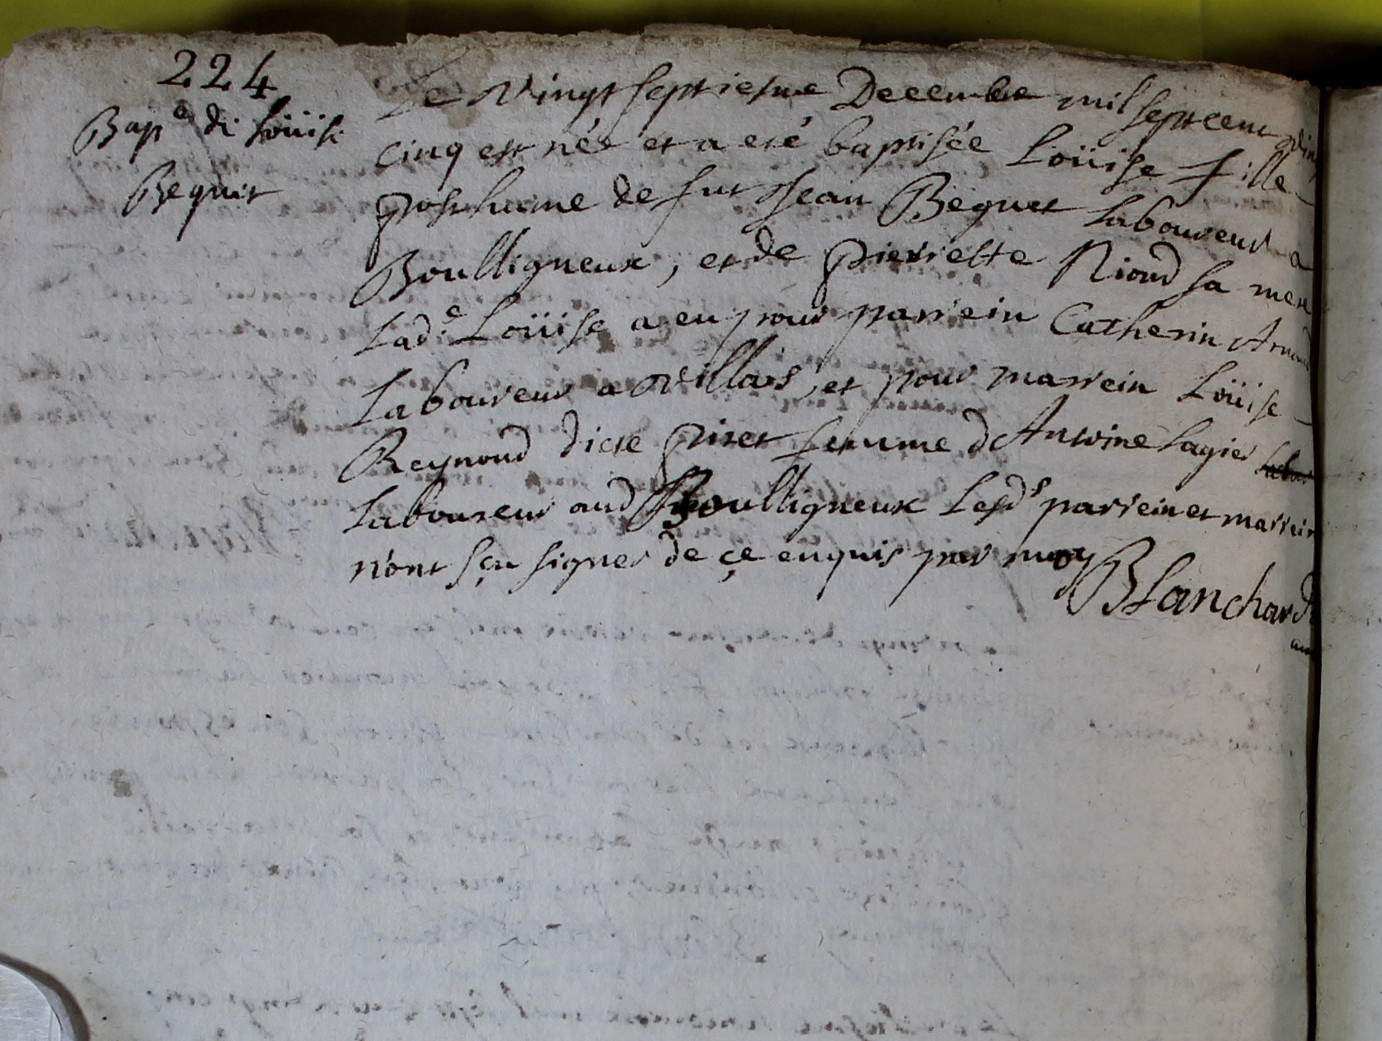 224
Bap.e de Loüise
Bequet
Le vingt septiesme Decembre mil sept cent vingt
cinq est née et a eté baptisée Loüise fille
posthume de fut Jean Bequet Laboureur a
Boulligneux, et de pierrette Niond sa mere
Lad.e Loüise a eu pour parrein Catherin Arnaud
Laboureur a villars, et pour marrein Loüise
Reynond dicte piret femme d'Antoine Lagier
Laboureur aud Boulligneux Lesd.s parrein et marrein
n'ont sçu signer de çe enquis par moy
Blanchard